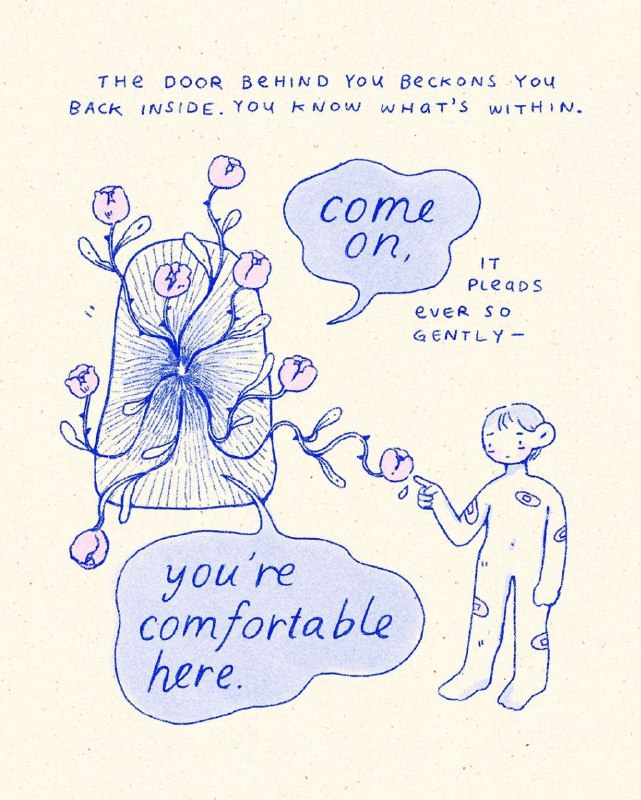 THE DOOR BEHIND YOU BECKONS YOU
BACK INSIDE. YOU KNOW WHAT'S WITHIN.
come
on,
IT
PLEADS
EVER SO
GENTLY—
you're
comfortable
here.